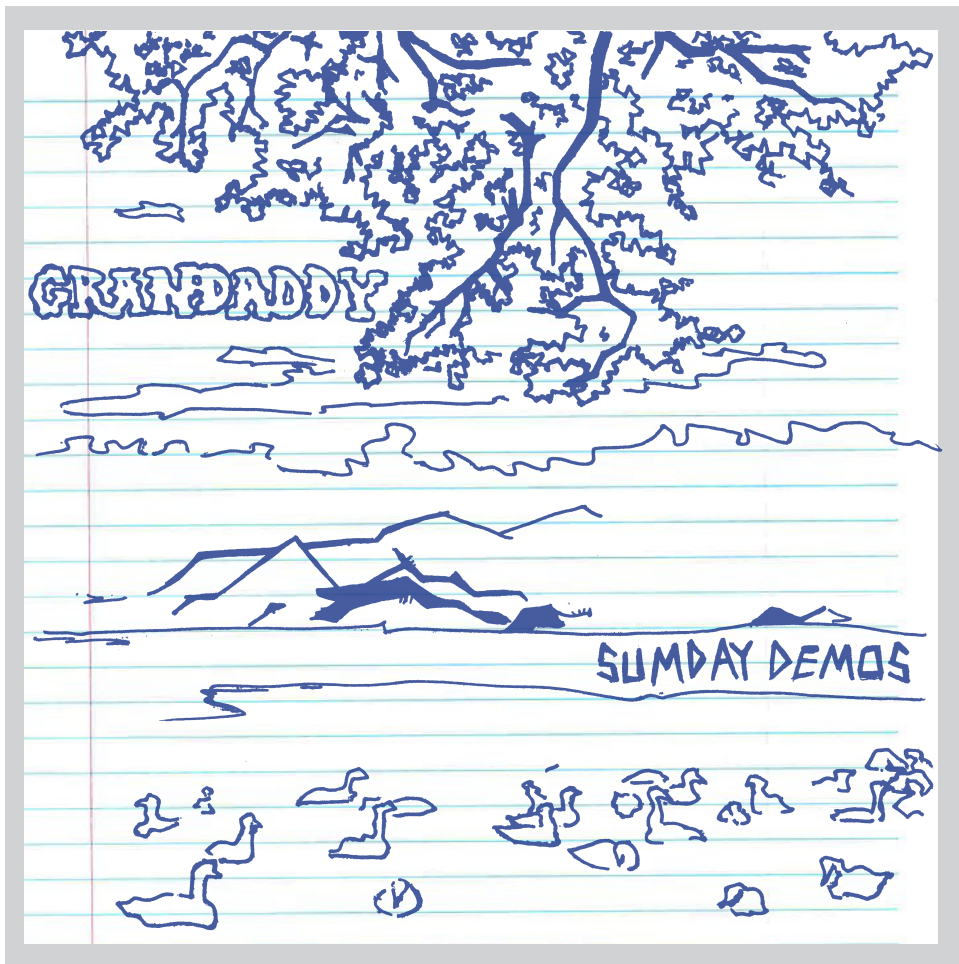 GRANDADDY
SUMDAY DEMOS